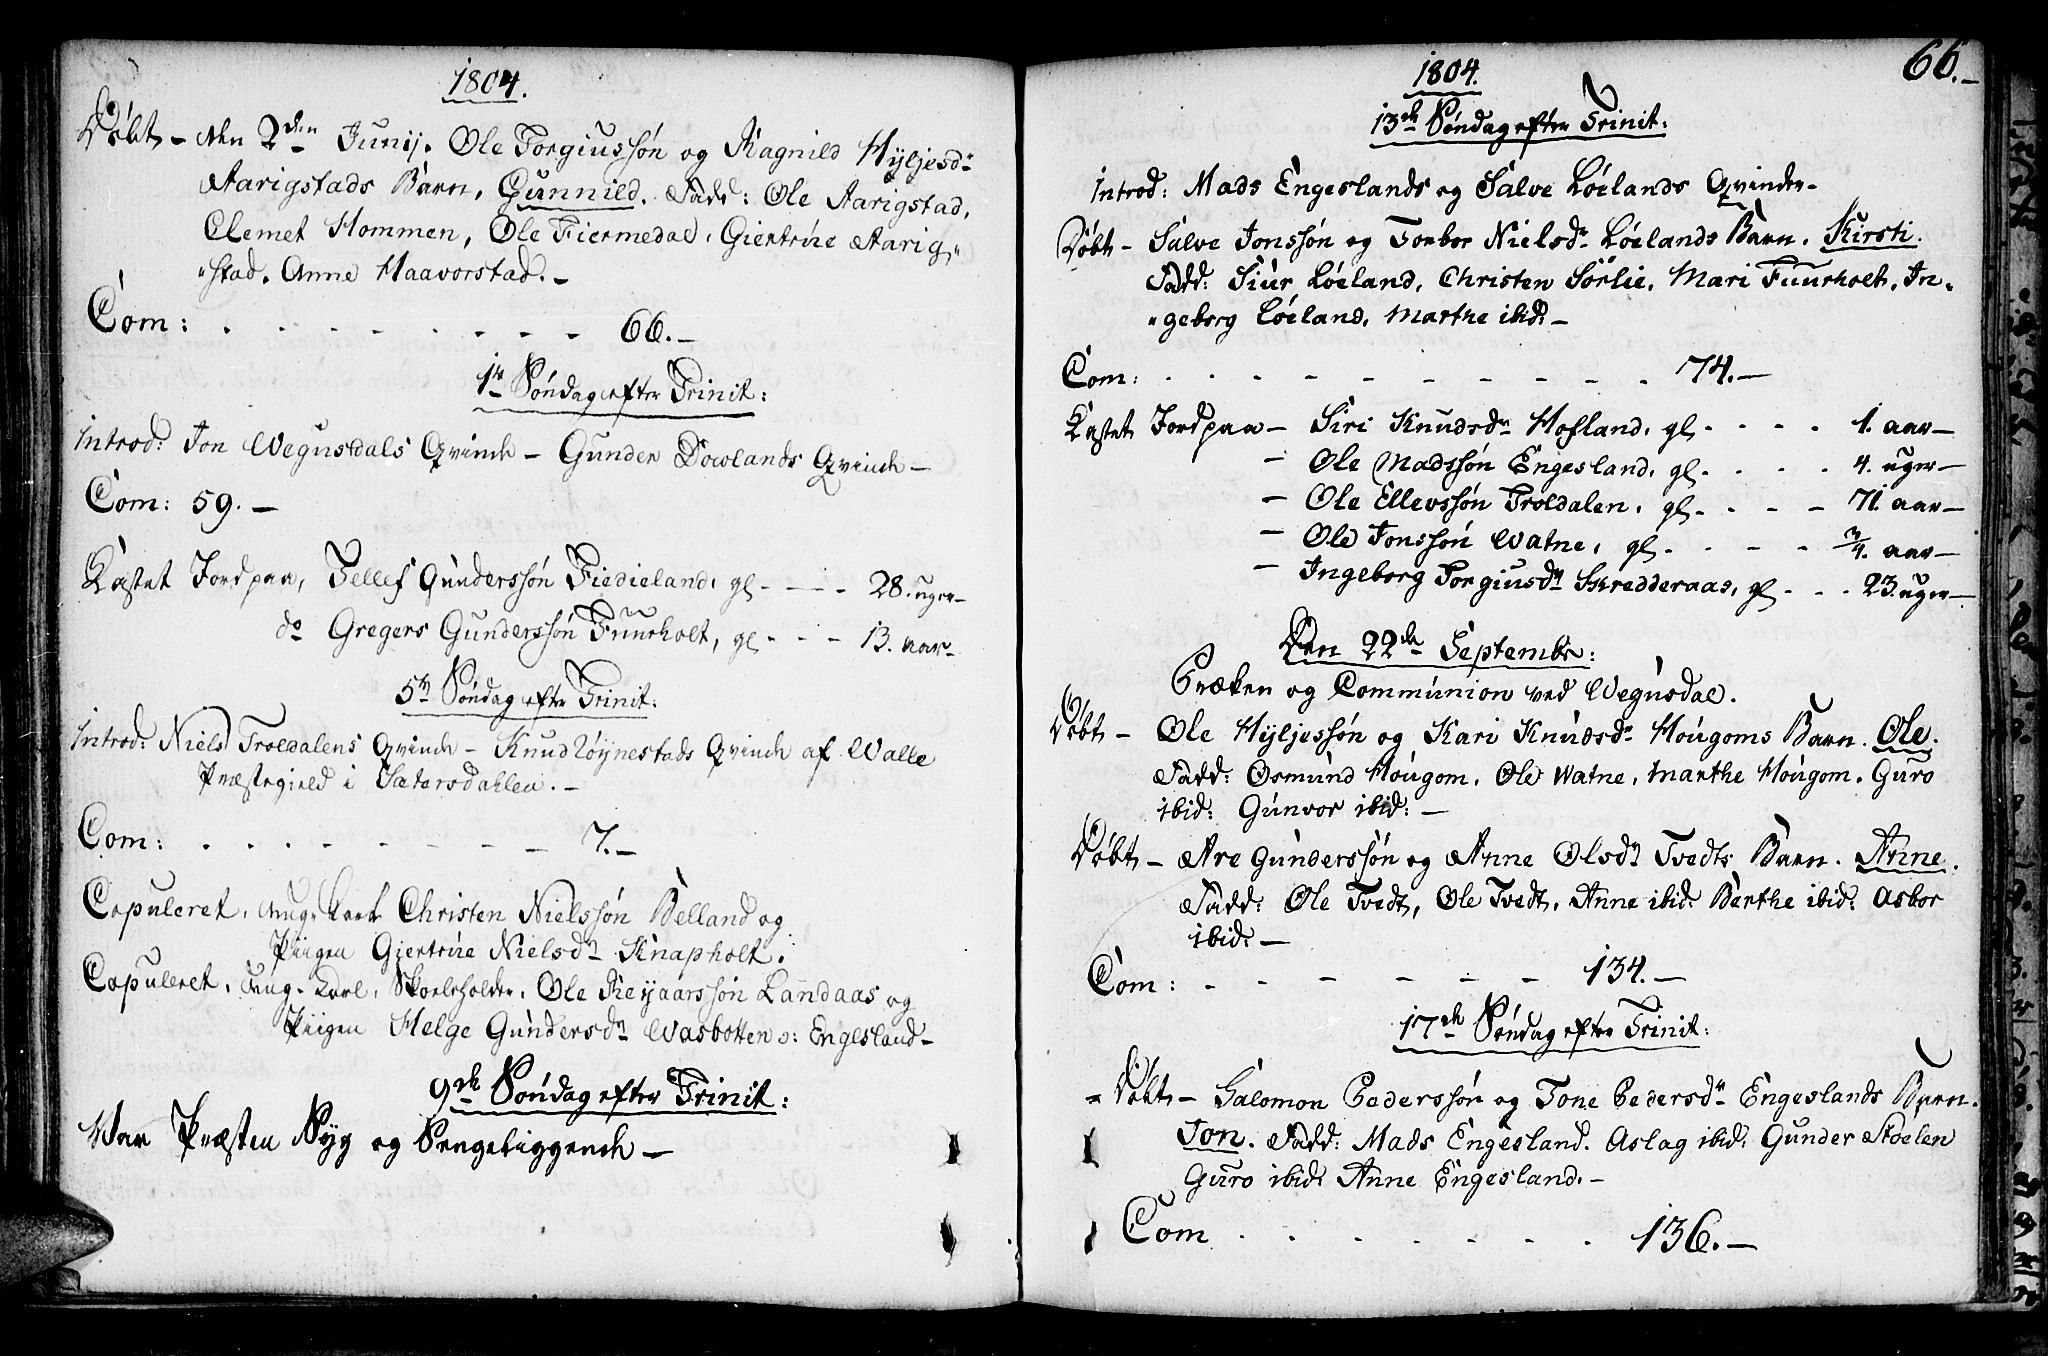 1804.
Døbt – den 2den Junij. Ole Torgiussøn og Ragnild Hyljesdr
Aarigstads Barn, Gunnild. Fadd: Ole Aarigstad,
Clemet Hommen, Ole Fiermedal, Giertrue Aarig„
„stad. Anne Haavorstad. –
Com: . - - - - - - - 66. –
1te Søndag efter Trinit:
Introd: Jon Wegusdals Qvinde – Gunder Dowlands Qvinde –
Com: 59. –
Kastet Jord paa, Tellef Gunderssøn Fiedieland, gl - - - - 28. uger –
do Gregers Gunderssøn Fuurholt, gl - - - 13. aar –
5te Søndag efter Trinit:
Introd: Niels Troldalens Qvinde – Knud Røynestads Qvinde af Walle
Præstegield i Sætersdahlen. –
Com: . . . . - - - - - 7. –
Copuleret. Ung-Karl Christen Nielssøn Belland og
Piigen Giertrue Nielsdr Knapholt.
Copuleret. Ung-Karl, Skoeleholder, Ole Reyaarssøn Landaas og
Piigen Helge Gundersdr Wasbotten o: Engesland –
9de Søndag efter Trinit:
Var Præsten Syg og Sengeliggende –
66. –
1804.
13de Søndag efter Trinit:
Introd: Mads Engeslands og Salve Løelands Qvinder –
Døbt – Salve Jonssøn og Torbor Nielsdr Løelands Barn. Kirsti.
Fadd: Siur Løeland, Christen Sørlie, Mari Fuurholt, In„
„geborg Løeland, Marthe ibid: –
Com: . . . - - - - - - - - 74. –
Kastet Jord paa – Siri Knudsdr Hofland, gl - - - - 1. aar –
– Ole Madssøn Engesland, gl - - - - 4. uger –
– Ole Ellevssøn Troldalen, gl - - - - 71. aar –
– Ole Jonssøn Watne, gl - - - - 3/4. aar –
– Ingeborg Torgiusdr Skredderaas, gl - - - 23. uger –
Den 22de Septembr:
Præken og Communion ved Wegusdal.
Døbt – Ole Hyljessøn og Kari Knudsdr Hougoms Barn. Ole.
Fadd: Osmund Hougom, Ole Watne, Marthe Hougom. Guro
ibid: Gunvor ibid: –
Døbt – Are Gunderssøn og Anne Olsdr Tvedts Barn. Anne.
Fadd: Ole Tvedt, Ole Tvedt, Anne ibid: Berthe ibid: Asbor
ibid: –
Com: - - - - - - - 134. –
17de Søndag efter Trinit:
Døbt – Salomon Pederssøn og Tone Pedersdr Engeslands Barn.
Jon. Fadd: Mads Engesland. Aslag ibid: Gunder Støelen
Guro ibid: Anne Engesland. –
Com . . . . . . . 136. –